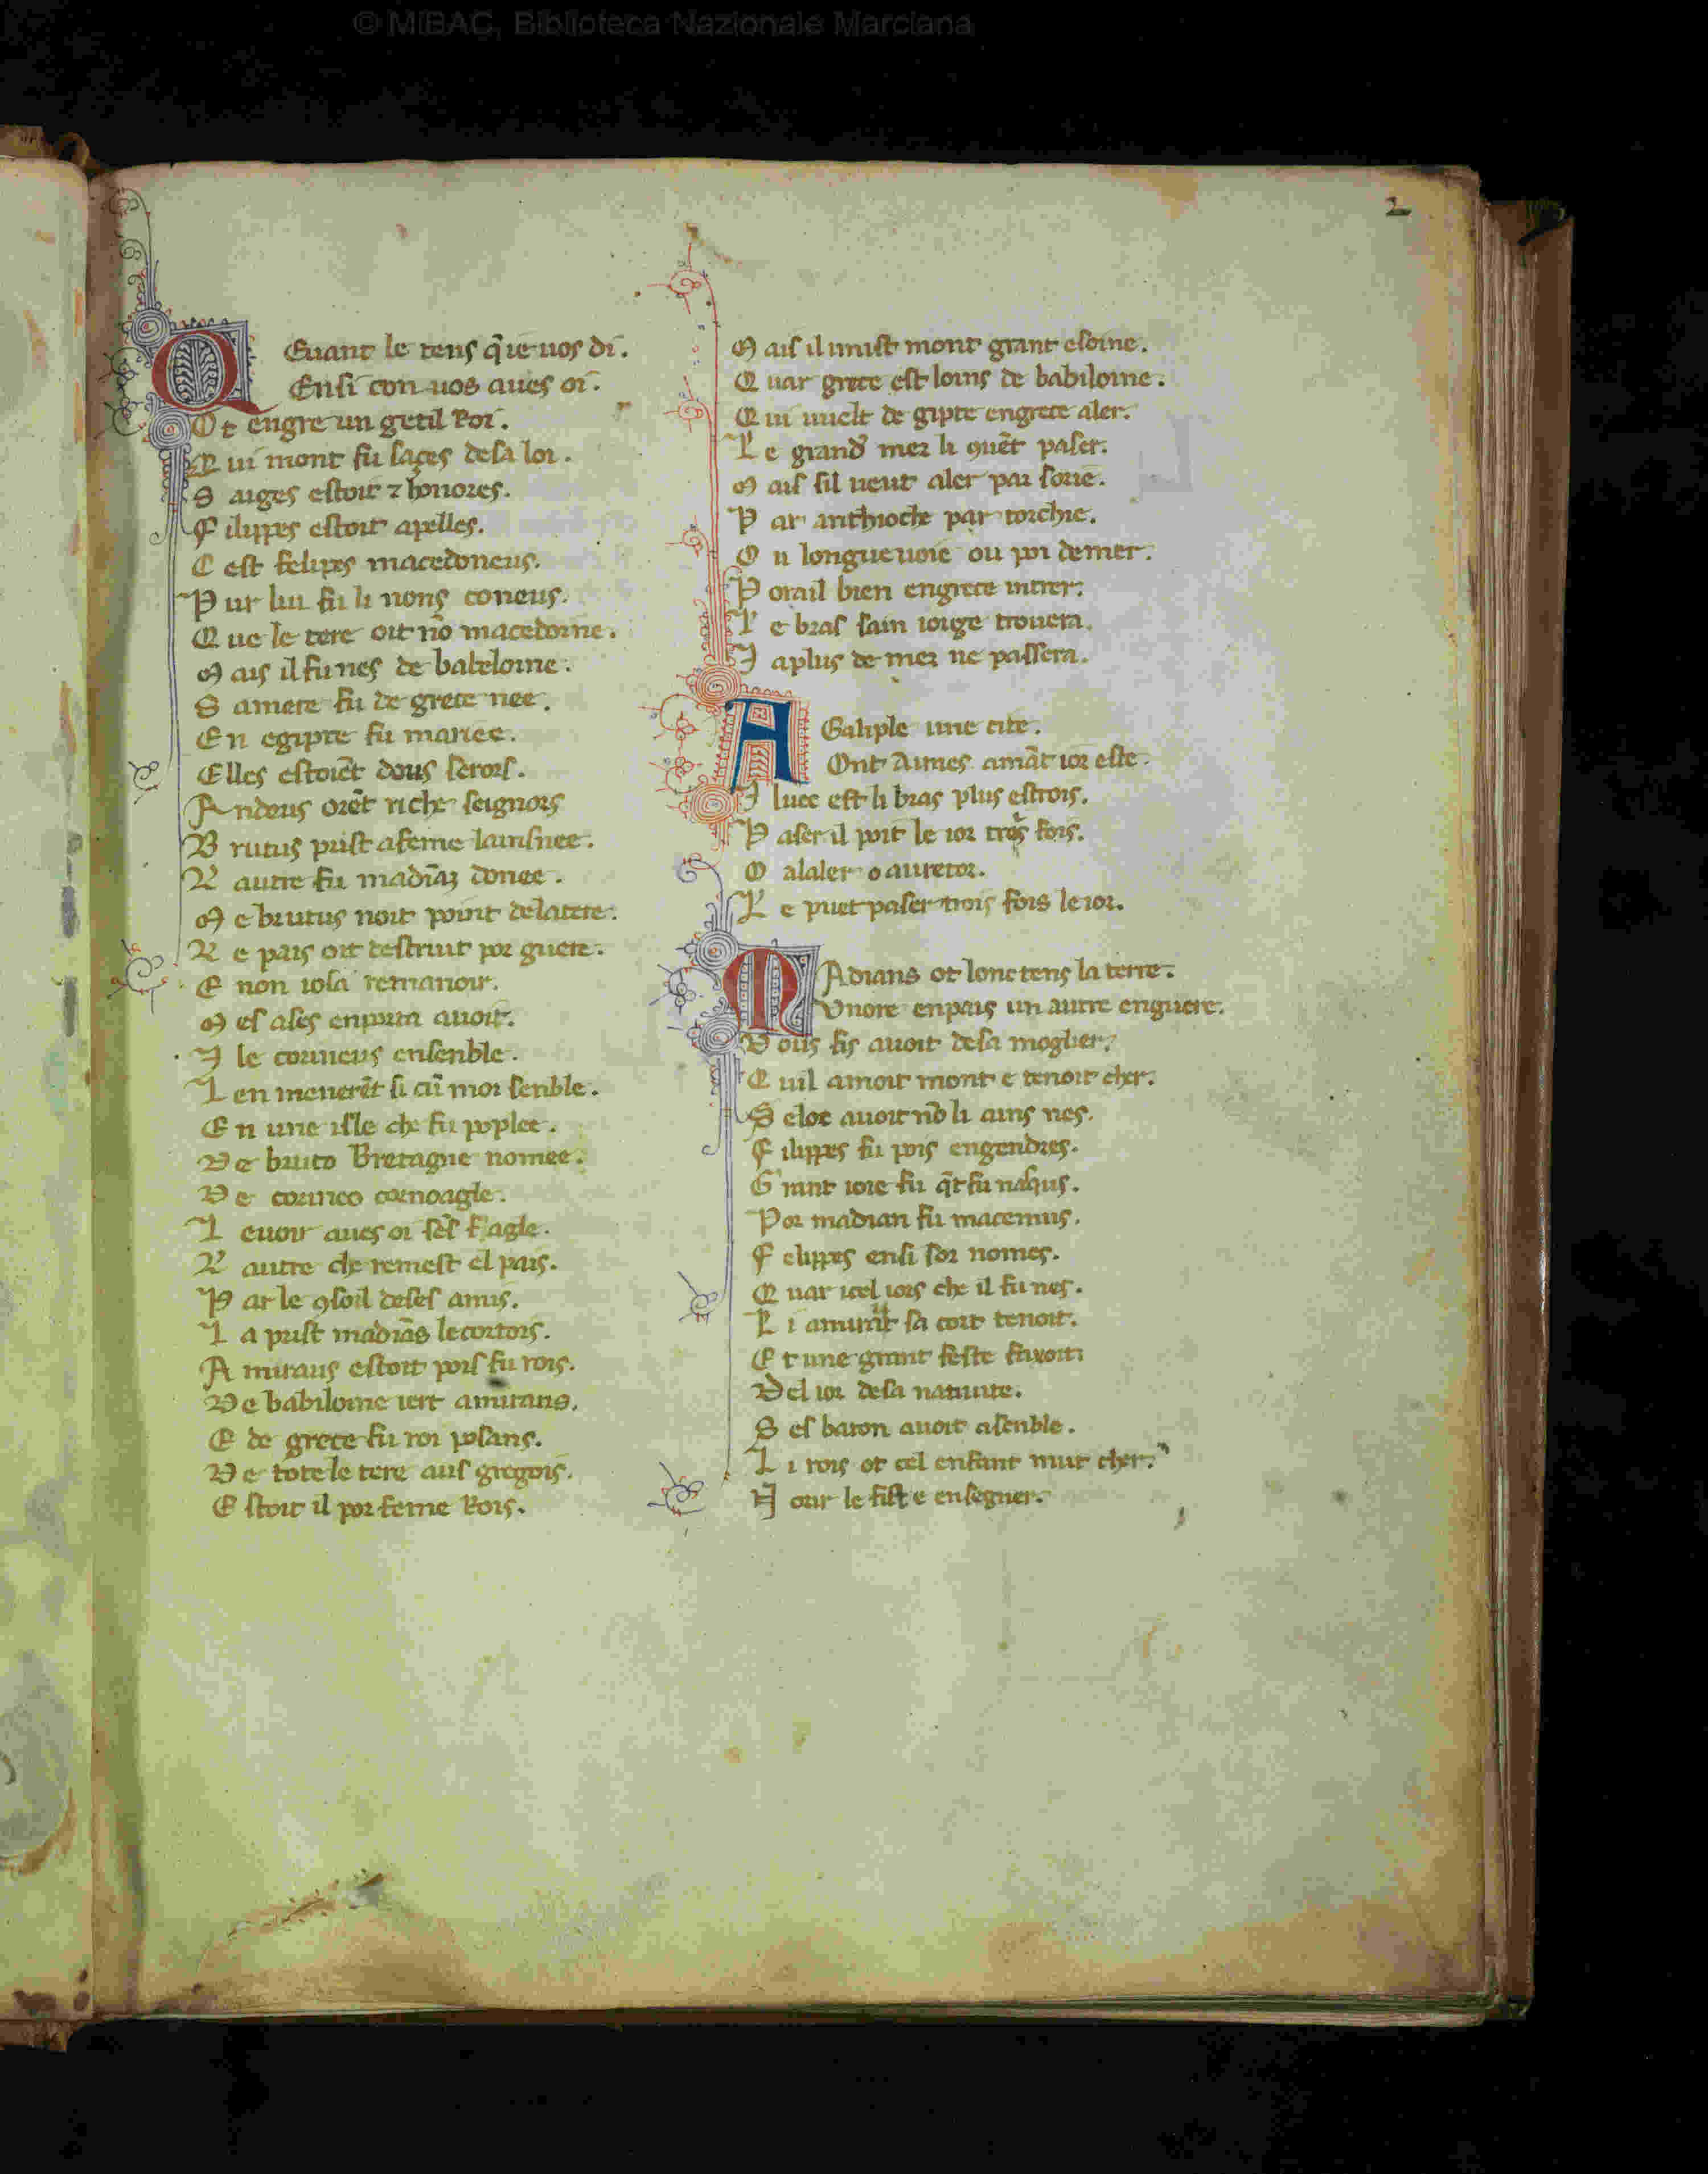 © MiBAC, Biblioteca Nazionale Marciana
2
QEuant le tens q̃ ie uos di.
Ensi con uos aues oi.
Ot engre un getil Roi.
Qui mont fu sages desa loi.
Saiges estoit ⁊ honores.
Filippes estoit apelles.
Cest felipes macedoneus.
Pur lui fu li nons coneus.
Que le tere oit nō macedoine.
Mais il fu nes de babeloine.
Samere fu de grece nee.
En egipte fu mariee.
Elles estoiēt dous serors.
Andeus orēt riche seignors
Brutus prist afeme lainsnee.
Lautre fu madiāz donee.
Me brutus noit point delatere.
Le pais oit destruit por guere.
E non iosa remanoir.
Mes ases enpirta auoit.
Ile corineus ensenble.
Len menerēt si cū moi senble.
En une isle che fu poplee.
De bruto Bretagne nomee.
De corineo cornoagle.
Leuoir aues oi sēs fagle.
Lautre che remest el pais.
Par le ꝯsoil deses amis.
La prist madiās lecortois.
Amiraus estoit pois fu rois.
De babiloine iert amirans.
E de grece fu roi posans.
De tote le tere aus gregois.
Estoit il por feme Rois.
Mais il mist mont grant esoine.
Quar grece est loins de babiloine.
Qui uuelt de gipte engrece aler.
Le grand mer li ꝯuēt paser.
Mais sil ueut aler par sorie.
Par anthioche par torchie.
On longue uoie ou poi demer.
Porail bien engrece intrer.
Le bras sain iorge trouera.
Ia plus de mer ne passera.
AGaliple une cite.
Ont Aimes amāt ior este.
Iluec est li bras plus estrois.
Paser il poit le ior tres fois.
O alaler o auretor.
Le puet paser trois fois le ior.
MAdians ot lonc tens la terre.
Vnore enpais un autre enguere.
Dous fis auoit desa moglier.
Quil amoit mont e tenoit cher.
Seloc auoit nō li ains nes.
Filippes fu pois engendres.
Grant ioie fu q̄t fu nasqus.
Por madian fu macemus.
Felippes ensi sor nomes.
Quar icel iors che il fu nes.
Li amirāt sa cort tenoit.
Et une grant feste faxoit.
Del ior desa natiuite.
Ses baron auoit asenble.
Li rois ot cel enfant mut cher.
Norir le fist e ensegner.